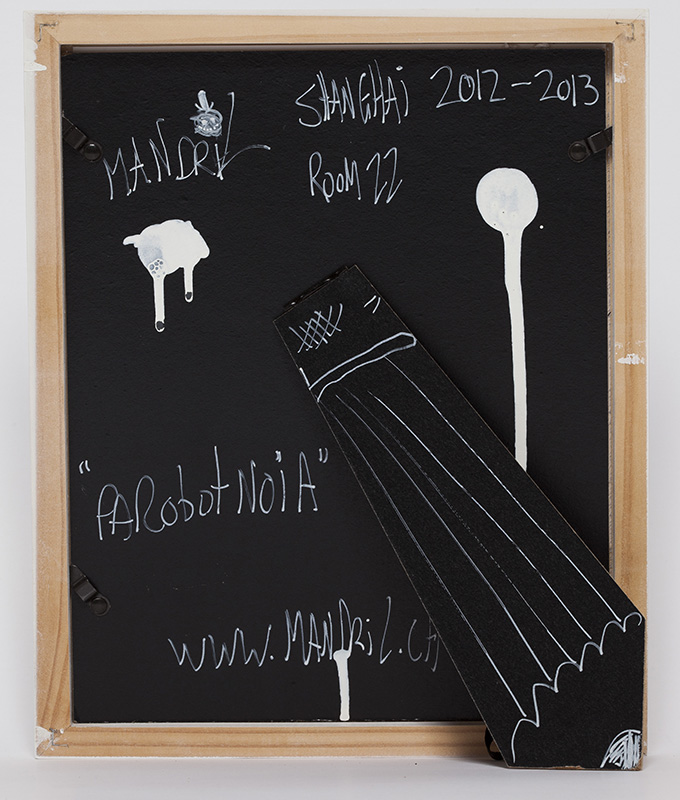 MANDRIL
SHANGHAi 2012-2013
ROOM 22
"PARobotNOiA"
WWW.MANDRiL.CH